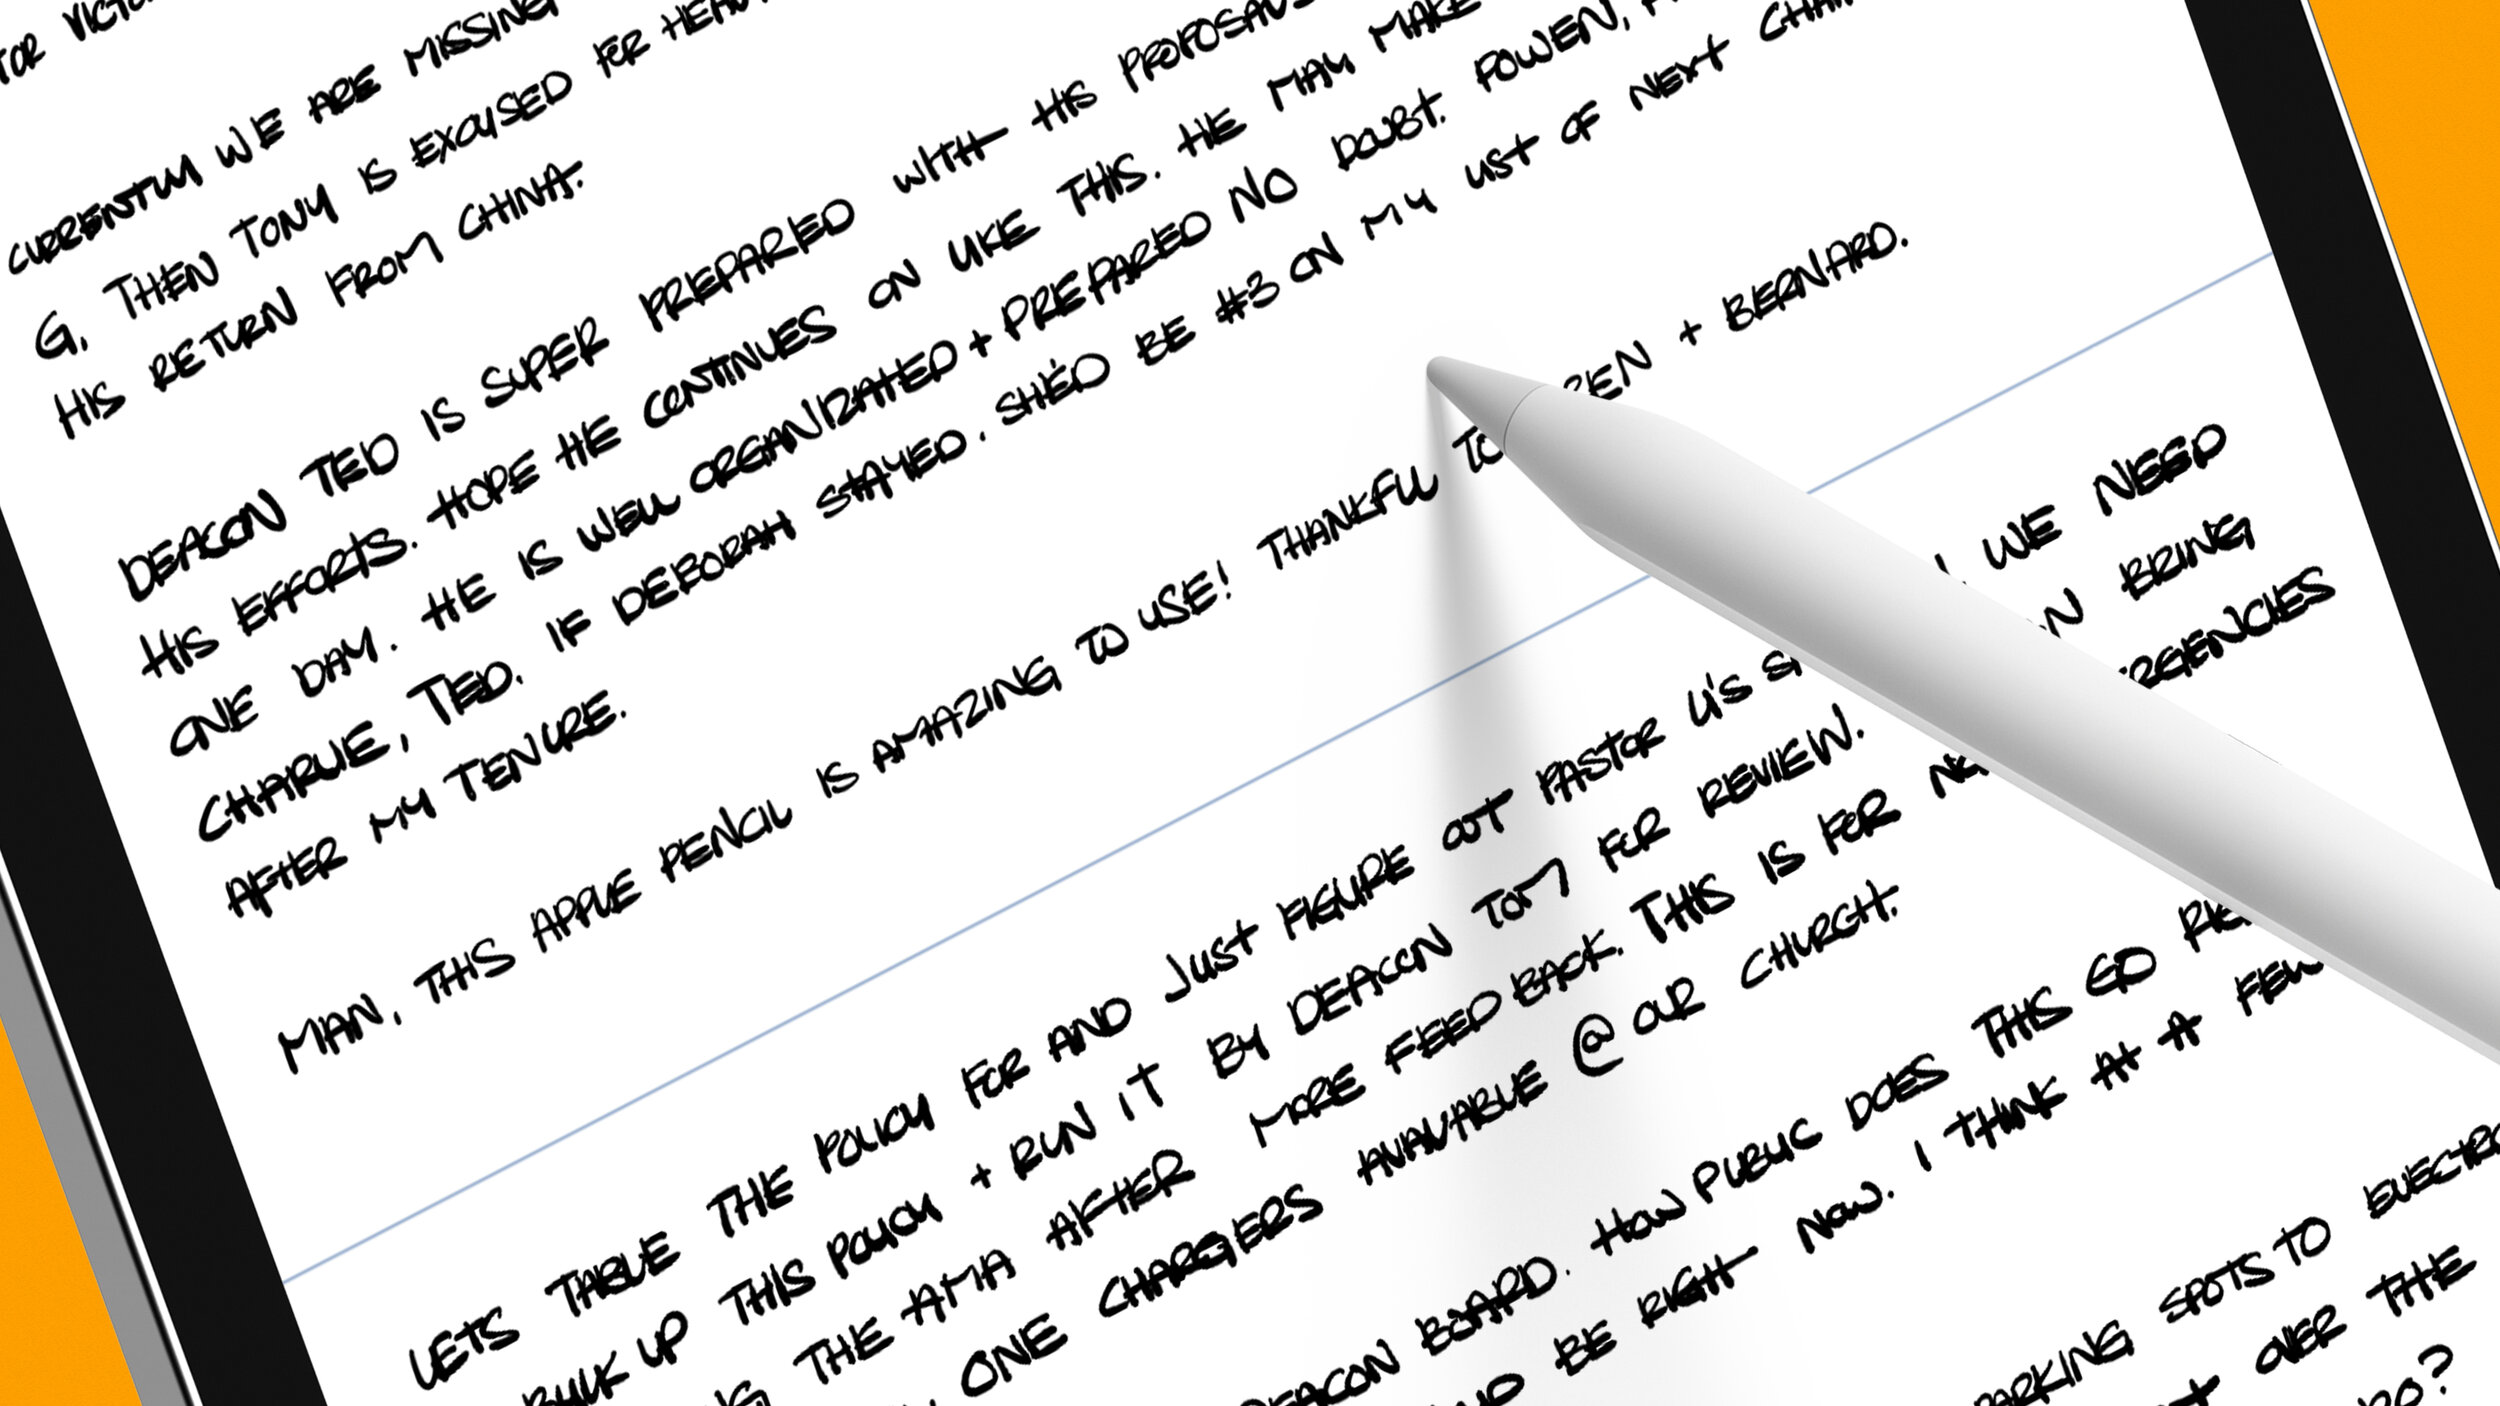 TOR VICTO
CURRENTLY WE ARE MISSING
G, THEN TONY IS EXCUSED FOR HEA
HIS RETURN FROM CHINA.
DEACON TED IS SUPER PREPARED WITH HIS PROPOSALS
HIS EFFORTS. HOPE HE CONTINUES ON LIKE THIS. HE MAY MAKE
ONE DAY. HE IS WELL ORGANIZATED + PREPARED NO DOUBT. POWEN,
CHARLIE, TED. IF DEBORAH STAYED. SHE'D BE #3 ON MY LIST OF NEXT CHAI
AFTER MY TENURE.
MAN, THIS APPLE PENCIL IS AMAZING TO USE! THANKFUL TO REN + BERNARD.
LETS TABLE THE POLICY FOR AND JUST FIGURE OUT PASTOR LI'S WE NEED
BULK UP THIS POLICY + RUN IT BY DEACON TOM FOR REVIEW. N BRING
NG THE AMA AFTER MORE FEED BACK. THIS IS FOR RGENCIES
ONE CHARGERS AVAILABLE @ OUR CHURCH.
DEACON BOARD. HOW PUBLIC DOES THIS GO RIG
BE RIGHT NOW. I THINK AT A FEW
PARKING SPOTS TO ELECTRO
OVER THE
DO?